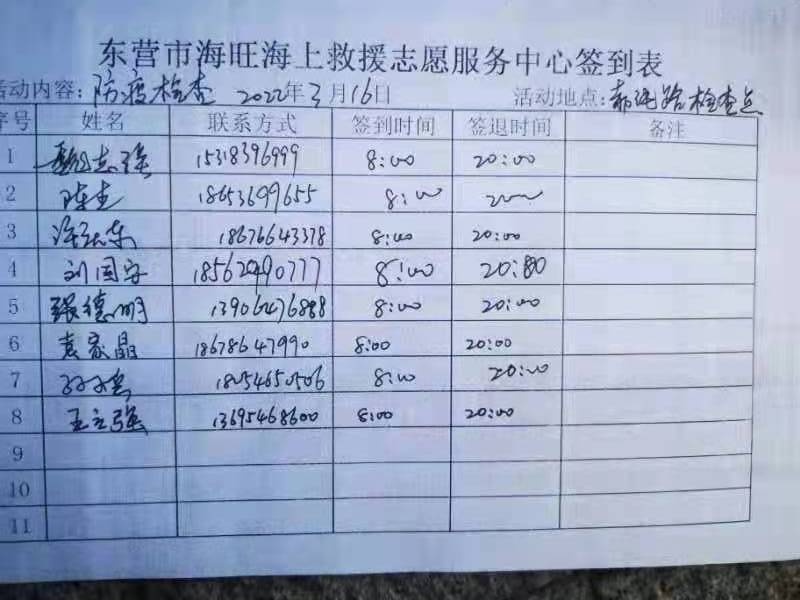 东营市海旺海上救援志愿服务中心签到表
活动内容：防疫检查 2022年3月16日 活动地点：郝纯路检查点
序号 姓名 联系方式 签到时间 签退时间 备注
1 志强 15318396999 8:00 20:00
2 陈圭 18653699655 8:00
3 18676643378 8:00 20:00
4 刘国宇 18562490777 8:00 20:80
5 张德明 13906476888 8:00 20:00
6 袁家晶 18678647990 8:00 20:00
7 18054650506 8:00 20:00
8 王立强 13695468600 8:00 20:00
9
10
11